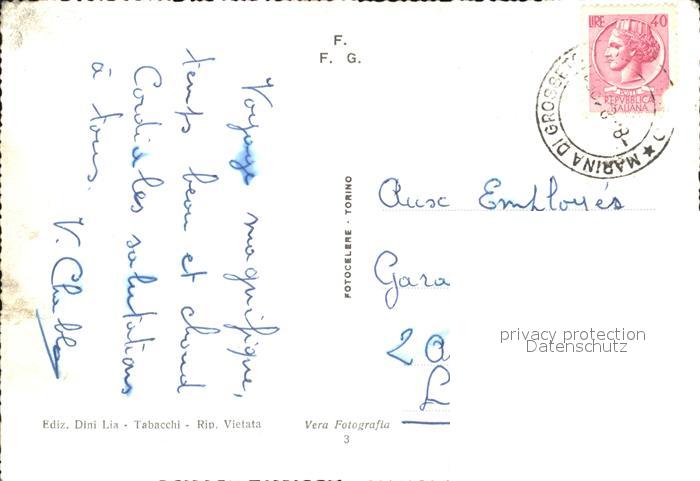 F.
F. G.
LIRE 40
POSTE
REPVBBLICA
ITALIANA
MARINA DI GROSSETO
Voyage magnifique,
temps beau et chaud
Cordiales salutations
à tous.
FOTOCELERE - TORINO
Aux Employés
Gara
2
L
privacy protection
Datenschutz
Ediz. Dini Lia - Tabacchi - Rip. Vietata
Vera Fotografia
3